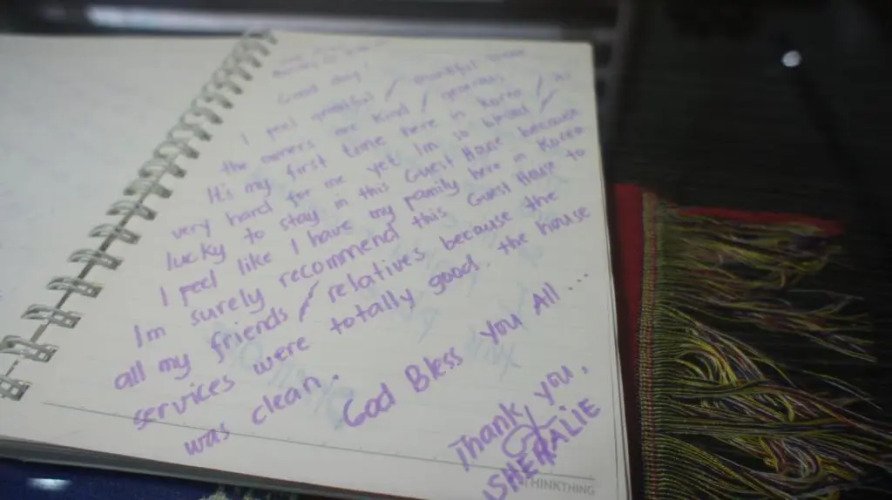 Good day!
I feel grateful / thankful
the owners are kind / generous
It's my first time here in Korea / its
very hard for me yet Im so blessed /
lucky to stay in this Guest House because
I feel like I have my family here in Korea
Im surely recommend this Guest House to
all my friends / relatives because the
services were totally good. the house
was clean.
God Bless you All ...
Thank you,
SHERALIE
THINKTHING